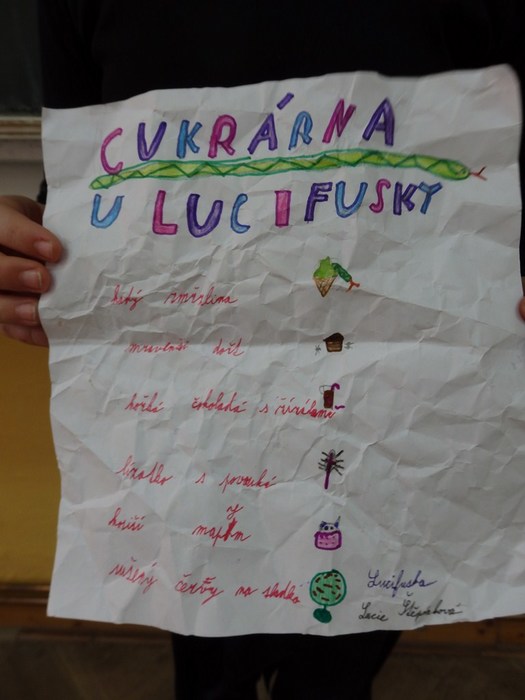 CUKRÁRNA
U LUCIFUSKY
hadí zmrzlina
mravenčí dort
hořká čokoládá s žížalami
lízátko s pavouká
kousí
sušený červy na sladko
Lucifuska
Lucie Štěpánková